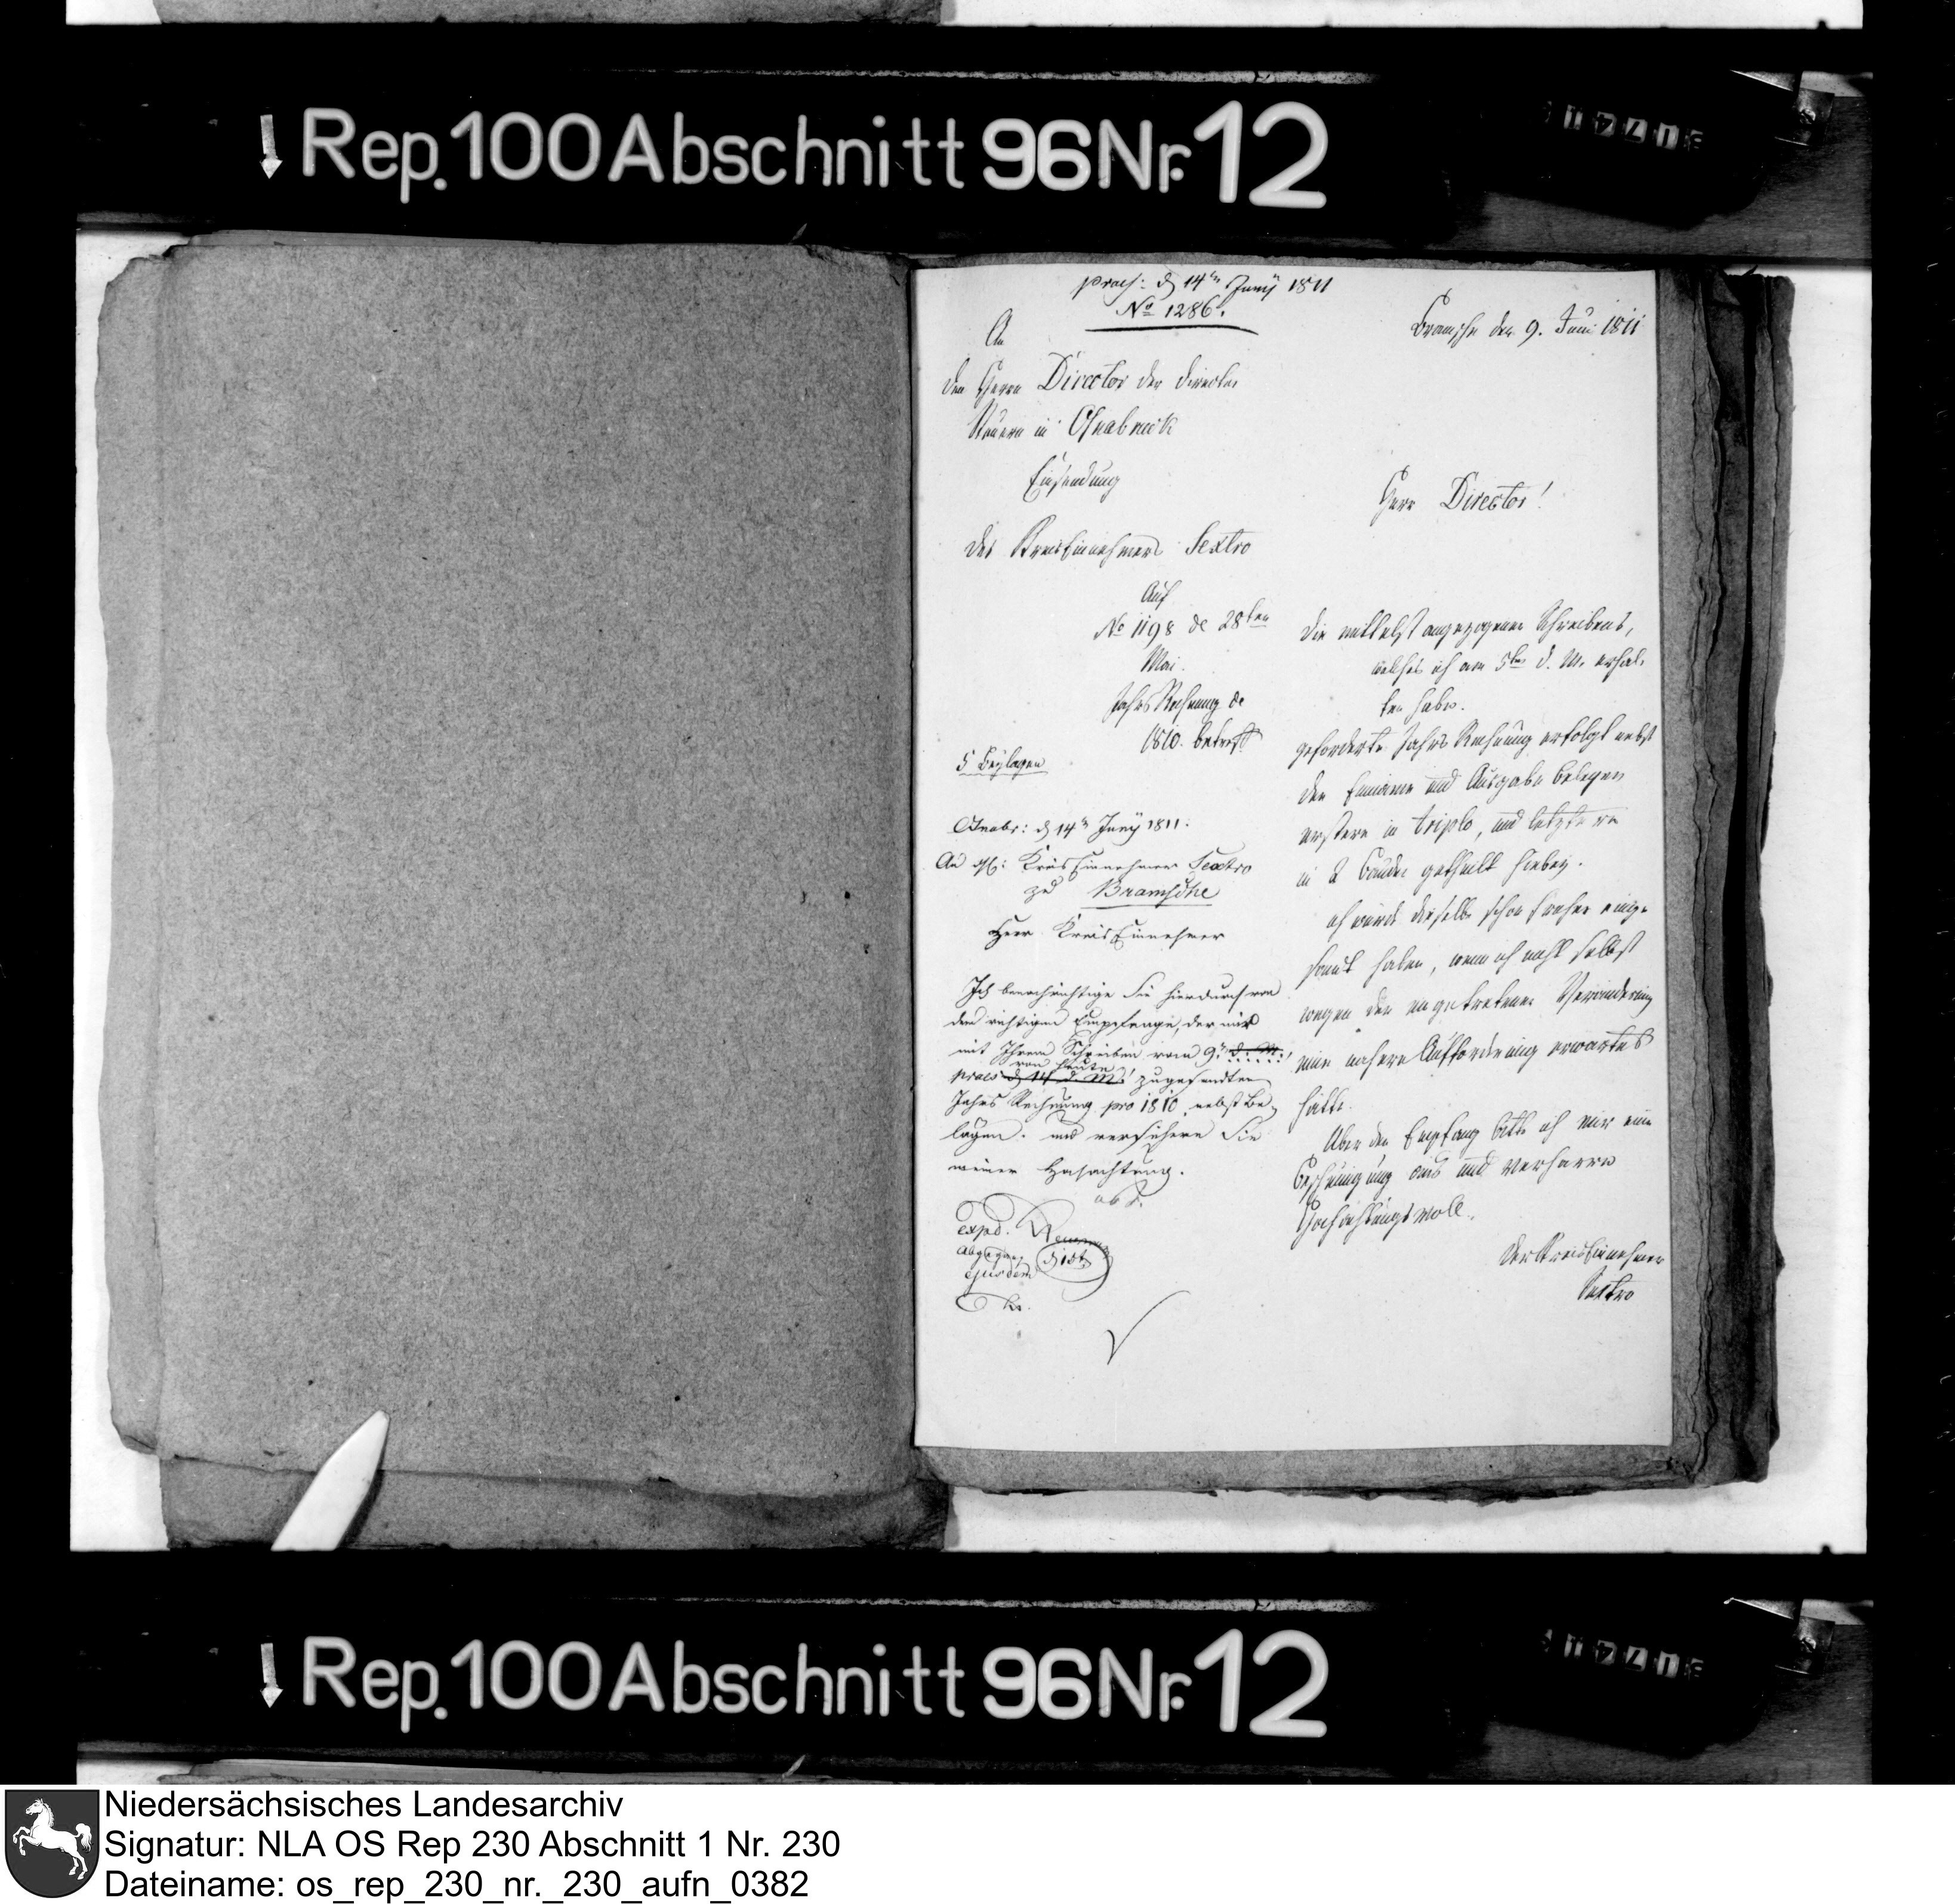 Rep. 100 Abschnitt 96 Nr. 12
praes: d 14ten Junÿ 1811
No 1286.
Bramsche den 9. Juni 1811
An
den Herrn Director der directen
Steuern in Osnabrück
Einsendung
des KreisEinnehmers Sextro
Herr Director!
Auf
No 1198 de 28ten
Mai.
Jahrs Rechnung de
1810. betreff
5 Beylagen
die mittelst angezogenen Schreibens,
welches ich am 5ten d. M. erhal-
ten habe.
geforderte Jahrs Rechnung erfolgt nebst
den Einname und Ausgabe Belegen
erstere in triplo, und letztere
in 2 Bände getheilt hiebey.
ich würde dieselbe schon früher einge-
sandt haben, wenn ich nicht selbst
wegen der eingetretenen Veränderung
eine nähere Aufforderung erwartet
hätte.
Über den Empfang bitte ich mir eine
Bescheinigung aus und verharre
Hochachtungsvoll.
Der KreisEinnehmer
Sextro
Osnabr: d 14ten Junÿ 1811.
An KreisEinnehmer Sextro
zu Bramsche
Herr KreisEinnehmer
Ich benachrichtige Sie hierdurch von
dem richtigen Empfange, der mir
mit Ihrem Schreiben vom 9ten d. M.
von heute
praes d 14 d. M. zugesandten
Jahrs Rechnung pro 1810, nebst Be-
lägen. und versichere Sie
meiner Hochachtung.
expd.
abgegang.
ejusdem
Rep. 100 Abschnitt 96 Nr. 12
Niedersächsisches Landesarchiv
Signatur: NLA OS Rep 230 Abschnitt 1 Nr. 230
Dateiname: os_rep_230_nr._230_aufn_0382